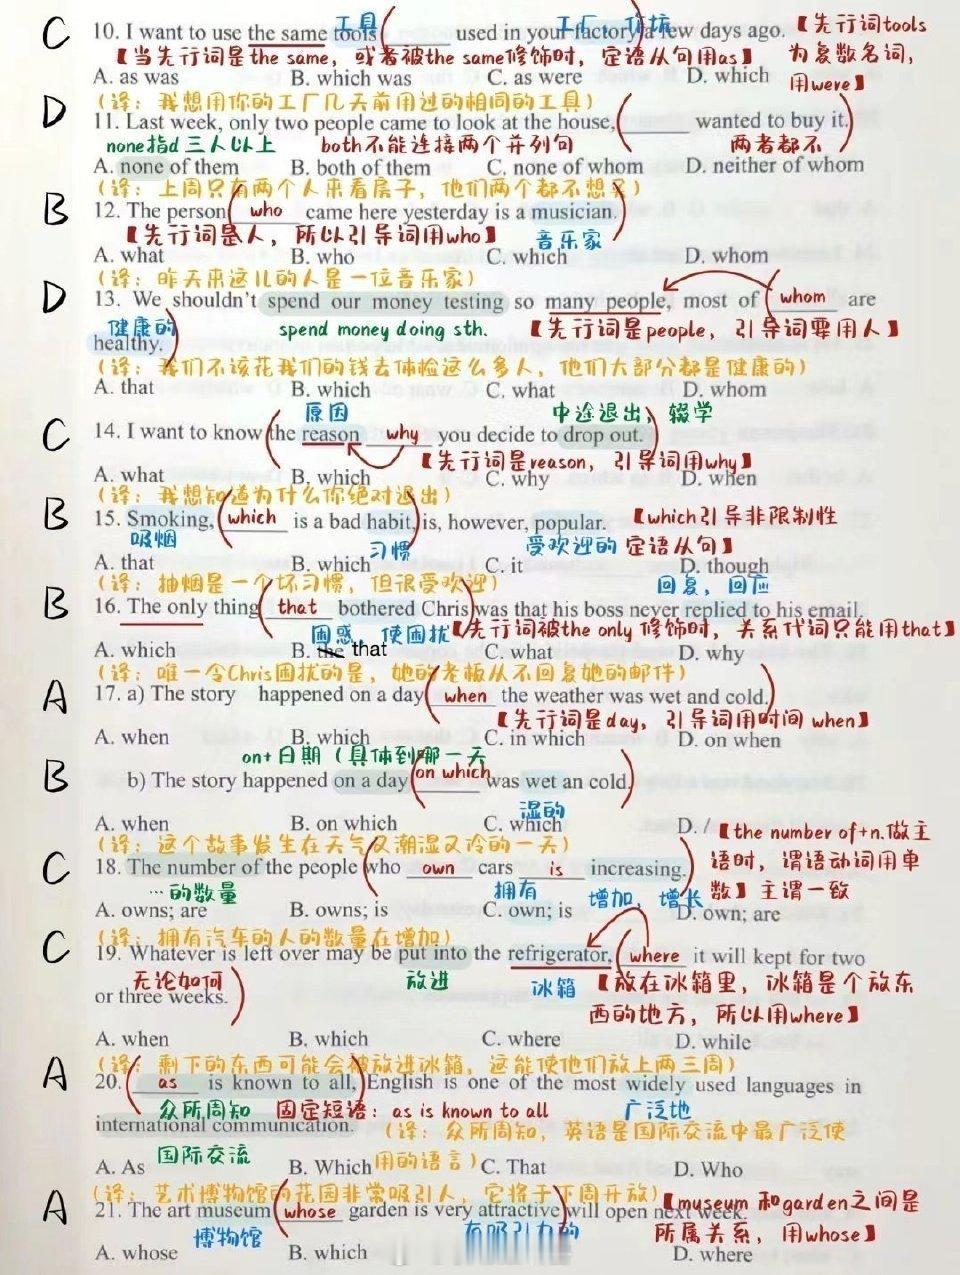 C 10. I want to use the same tools ______ used in your factory a few days ago. 【先行词tools
工具 工厂
【当先行词是the same，或者被the same修饰时，定语从句用as】 为复数名词，
A. as was B. which was C. as were D. which 用were】
(译：我想用你的工厂几天前用过的相同的工具)
D 11. Last week, only two people came to look at the house, ______ wanted to buy it.
none指d三人以上 both不能连接两个并列句 两者都不
A. none of them B. both of them C. none of whom D. neither of whom
(译：上周只有两个人来看房子，他们两个都不想买)
B 12. The person who came here yesterday is a musician.
【先行词是人，所以引导词用who】 音乐家
A. what B. who C. which D. whom
(译：昨天来这儿的人是一位音乐家)
D 13. We shouldn't spend our money testing so many people, most of whom are
健康的 spend money doing sth. 【先行词是people，引导词要用人】
healthy.
(译：我们不该花我们的钱去体检这么多人，他们大部分都是健康的)
A. that B. which C. what D. whom
原因 中途退出，辍学
C 14. I want to know the reason why you decide to drop out.
【先行词是reason，引导词用why】
A. what B. which C. why D. when
(译：我想知道为什么你绝对退出)
B 15. Smoking, which is a bad habit, is, however, popular. 【which引导非限制性
吸烟 习惯 受欢迎的 定语从句】
A. that B. which C. it D. though
(译：抽烟是一个坏习惯，但很受欢迎) 回复，回应
B 16. The only thing that bothered Chris was that his boss never replied to his email.
困惑，使困扰【先行词被the only修饰时，关系代词只能用that】
A. which B. the that C. what D. why
(译：唯一令Chris困扰的是，她的老板从不回复她的邮件)
A 17. a) The story happened on a day when the weather was wet and cold.
【先行词是day，引导词用时间 when】
A. when B. which C. in which D. on when
on+日期（具体到哪一天
B b) The story happened on a day on which was wet an cold.
湿的
A. when B. on which C. which D. /
(译：这个故事发生在天气又潮湿又冷的一天) 【the number of+n.做主
C 18. The number of the people who own cars is increasing. 语时，谓语动词用单
…的数量 拥有 增加，增长 数】主谓一致
A. owns; are B. owns; is C. own; is D. own; are
(译：拥有汽车的人的数量在增加)
C 19. Whatever is left over may be put into the refrigerator, where it will kept for two
无论如何 放进 冰箱 【放在冰箱里，冰箱是个放东
or three weeks. 西的地方，所以用where】
A. when B. which C. where D. while
(译：剩下的东西可能会被放进冰箱，这能使他们放上两三周)
A 20. as is known to all, English is one of the most widely used languages in
众所周知 固定短语：as is known to all 广泛地
international communication. (译：众所周知，英语是国际交流中最广泛使
国际交流 用的语言)
A. As B. Which C. That D. Who
(译：艺术博物馆的花园非常吸引人，它将于下周开放)【museum 和garden之间是
A 21. The art museum whose garden is very attractive will open next week.
博物馆 有吸引力的 所属关系，用whose】
A. whose B. which D. where